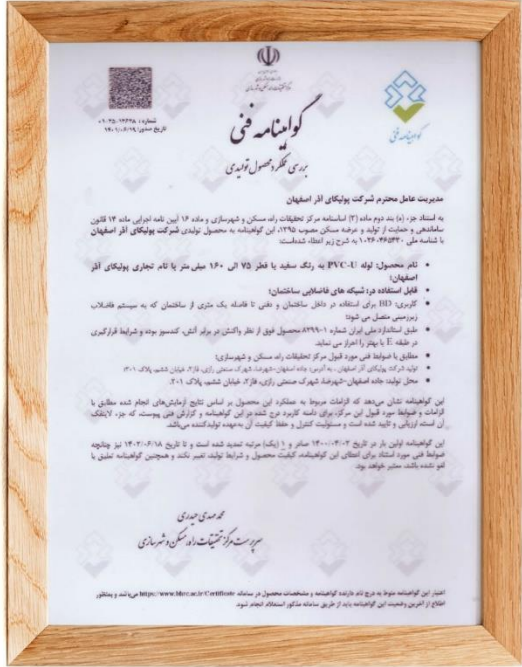 شماره: ۱۴۶۲۸-۰۱۰۲۵
تاریخ صدور: ۱۴۰۱/۰۶/۱۹
گواهینامه فنی
گواهینامه فنی
بررسی عملکرد محصول تولیدی
مدیریت عامل محترم شرکت پولیکای آذر اصفهان
به استناد جزء (ه) بند دوم ماده (۳) اساسنامه مرکز تحقیقات راه، مسکن و شهرسازی و ماده ۱۶ آیین نامه اجرایی ماده ۱۴ قانون
ساماندهی و حمایت از تولید و عرضه مسکن مصوب ۱۳۹۵، این گواهینامه به محصول تولیدی شرکت پولیکای آذر اصفهان
با شناسه ملی ۱۰۲۶۰۴۶۵۴۳۰ به شرح زیر اعطاء شده‌است:
• نام محصول: لوله PVC-U به رنگ سفید با قطر ۷۵ الی ۱۶۰ میلی‌متر با نام تجاری پولیکای آذر
اصفهان؛
• قابل استفاده در: شبکه های فاضلابی ساختمان؛
• کاربری: BD برای استفاده در داخل ساختمان و دفنی تا فاصله یک متری از ساختمان که به سیستم فاضلاب
زیرزمینی متصل می شود؛
• طبق استاندارد ملی ایران شماره ۱-۸۲۹۹ محصول فوق از نظر واکنش در برابر آتش، کندسوز بوده و شرایط قرارگیری
در طبقه E یا بهتر را احراز می نماید.
• مطابق با ضوابط فنی مورد قبول مرکز تحقیقات راه، مسکن و شهرسازی؛
• تولید شرکت پولیکای آذر اصفهان - به آدرس: جاده اصفهان-شهرضا، شهرک صنعتی رازی، فاز۲، خیابان ششم، پلاک ۲۰۱؛
• محل تولید: جاده اصفهان-شهرضا، شهرک صنعتی رازی، فاز۲، خیابان ششم، پلاک ۲۰۱.
این گواهینامه نشان می‌دهد که الزامات مربوط به عملکرد این محصول بر اساس نتایج آزمایش‌های انجام شده مطابق با
الزامات و ضوابط مورد قبول این مرکز، برای دامنه کاربرد درج شده در این گواهینامه و گزارش فنی پیوست، که جزء لاینفک
آن است، ارزیابی و تایید شده است و مسئولیت کنترل و حفظ کیفیت آن به‌عهده تولیدکننده می‌باشد.
این گواهینامه اولین بار در تاریخ ۱۴۰۰/۰۴/۰۲ صادر و ۱ (یک) مرتبه تمدید شده است و تا تاریخ ۱۴۰۲/۰۶/۱۸ نیز چنانچه
ضوابط فنی مورد استناد برای اعطای این گواهینامه، کیفیت محصول و شرایط تولید، تغییر نکند و همچنین گواهینامه تعلیق یا
لغو نشده باشد، معتبر خواهد بود.
محمد مهدی حیدری
سرپرست مرکز تحقیقات راه، مسکن و شهرسازی
اعتبار این گواهینامه منوط به درج نام دارنده گواهینامه و مشخصات محصول در سامانه https://www.bhrc.ac.ir/Certificate می‌باشد و به‌منظور
اطلاع از آخرین وضعیت این گواهینامه باید از طریق سامانه مذکور استعلام انجام شود.